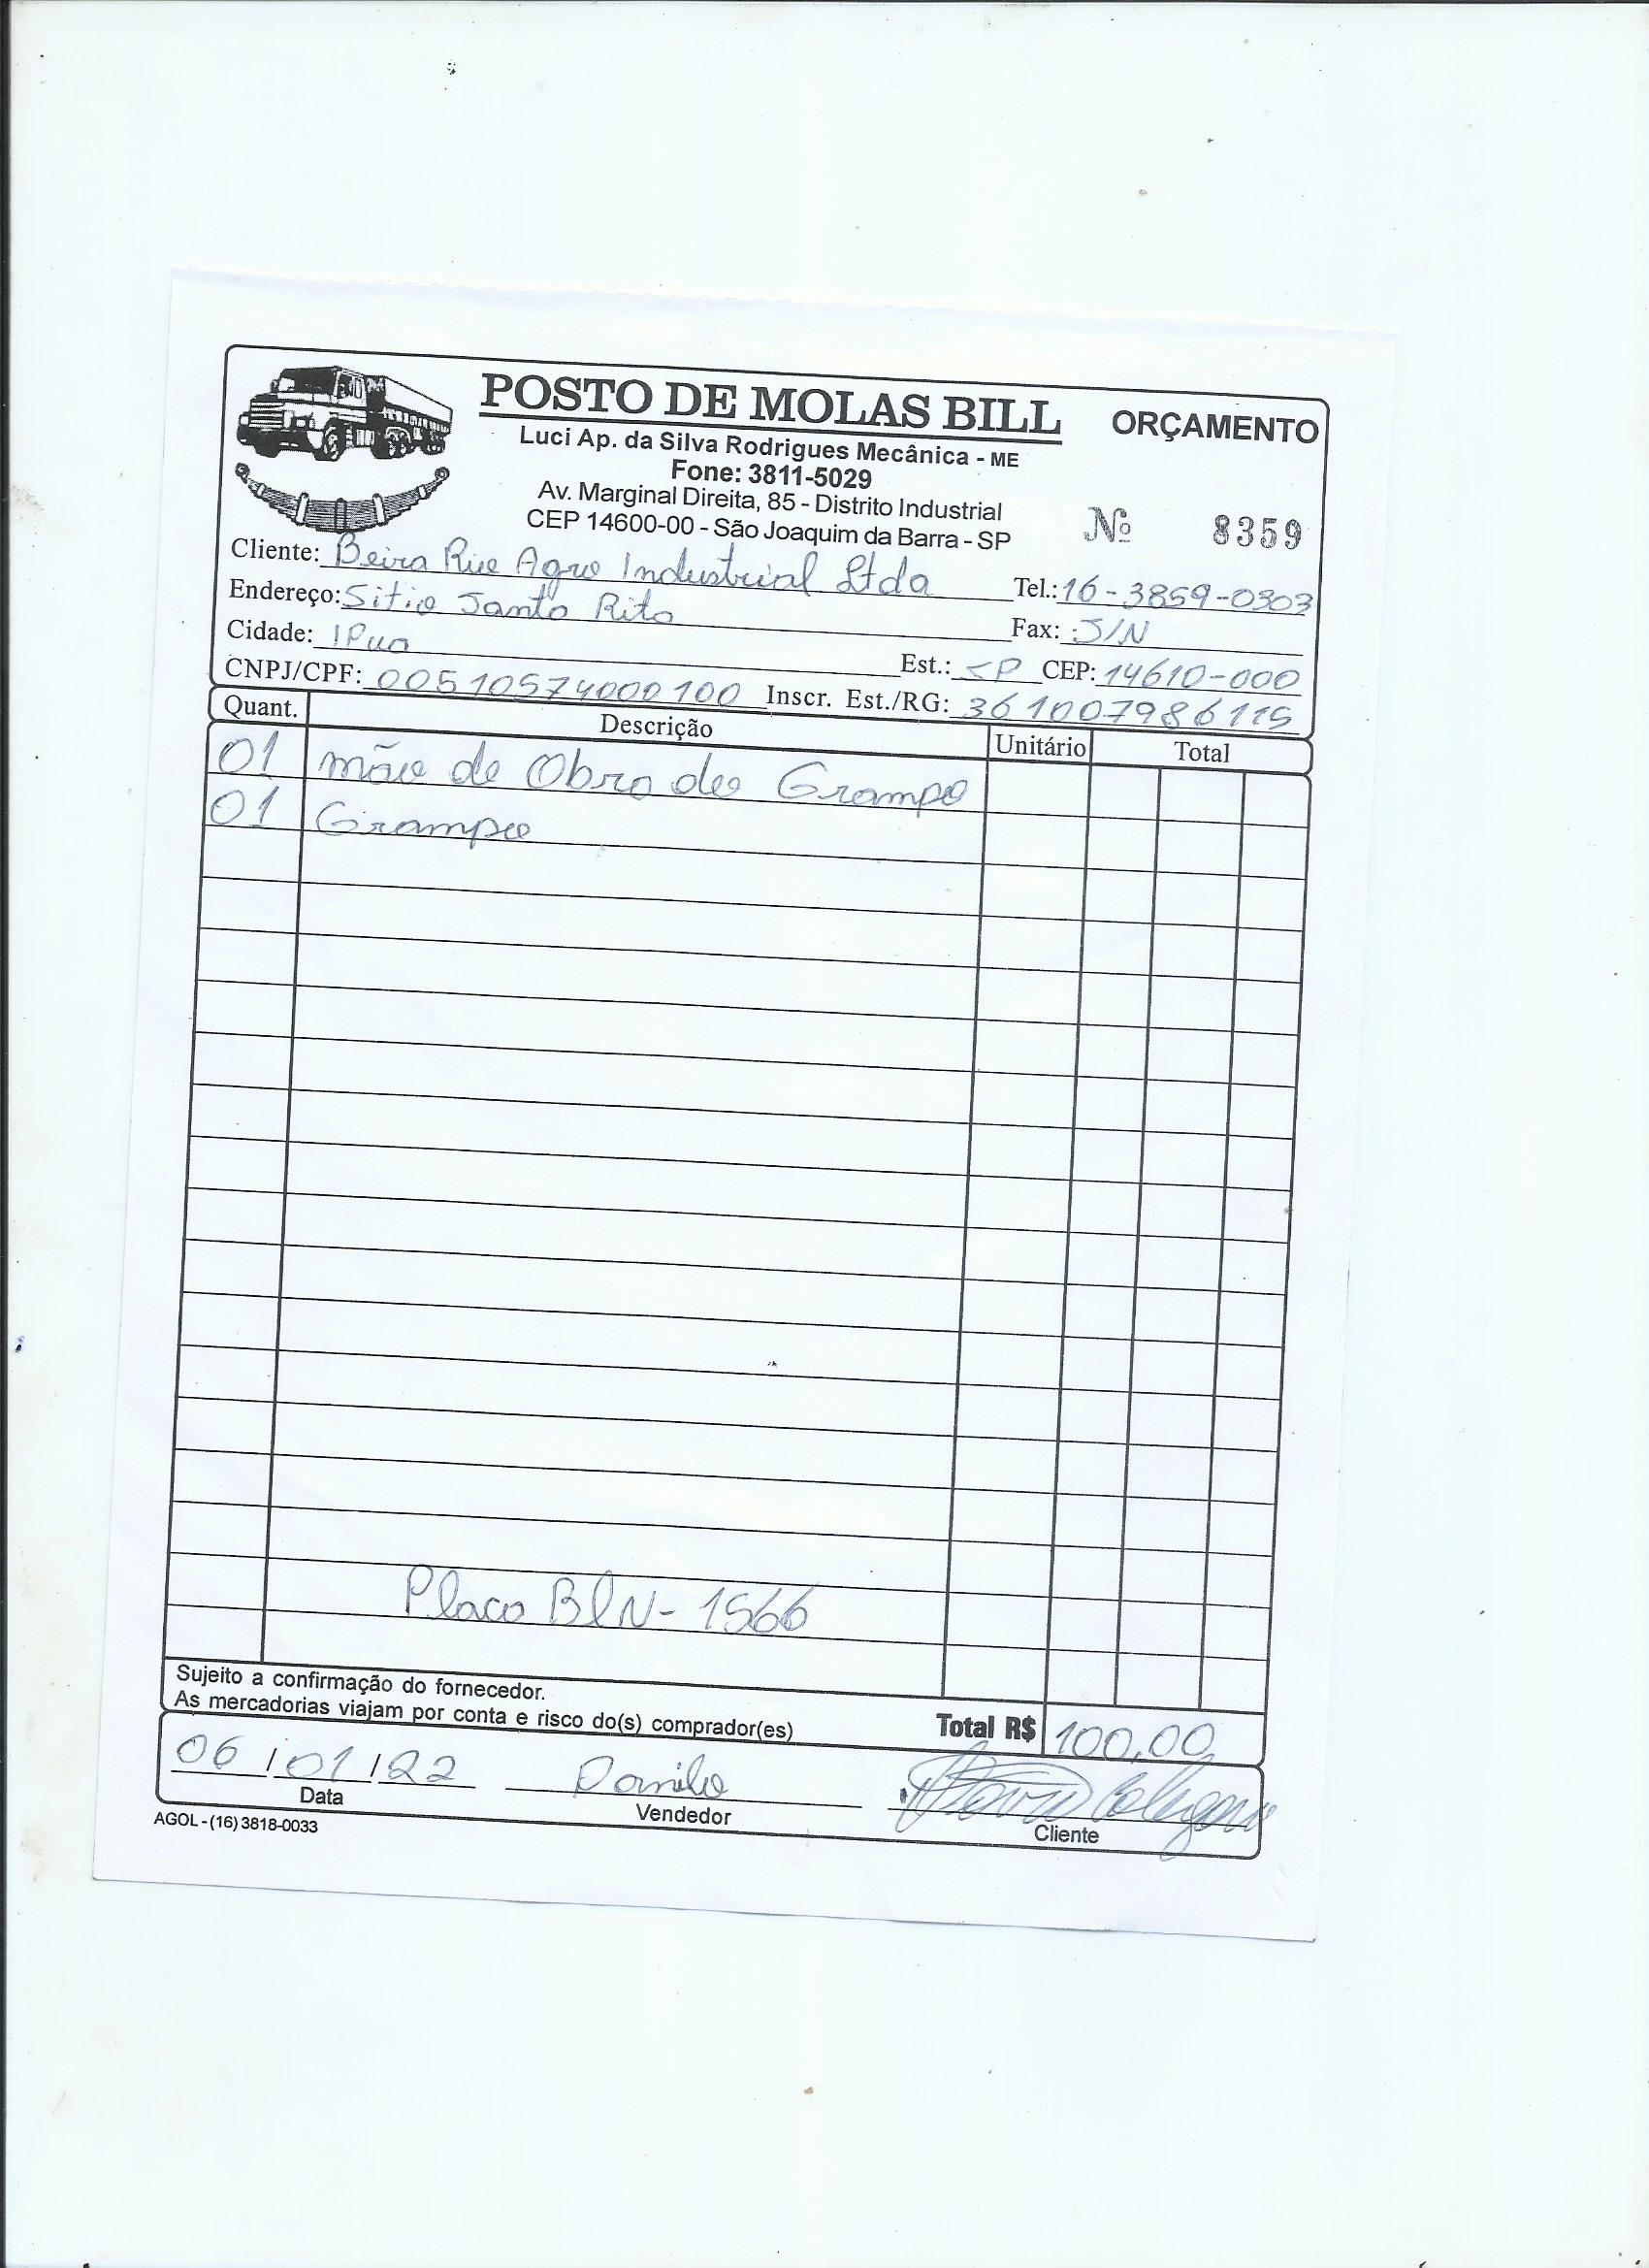 POSTO DE MOLAS BILL ORÇAMENTO
Luci Ap. da Silva Rodrigues Mecânica - ME
Fone: 3811-5029
Av. Marginal Direita, 85 - Distrito Industrial
CEP 14600-00 - São Joaquim da Barra - SP
Nº 8359
Cliente: Beira Rio Agro Industrial Ltda Tel.: 16-3859-0303
Endereço: Sitio Santa Rita Fax: S/N
Cidade: IPua Est.: SP CEP: 14610-000
CNPJ/CPF: 00510574000100 Inscr. Est./RG: 361007986115
Quant. Descrição Unitário Total
01 mão de Obra do Grampo
01 Grampo
Placa BlN-1566
Sujeito a confirmação do fornecedor.
As mercadorias viajam por conta e risco do(s) comprador(es)
Total R$ 100,00
06/01/22 Danilo
Data Vendedor Cliente
AGOL - (16) 3818-0033